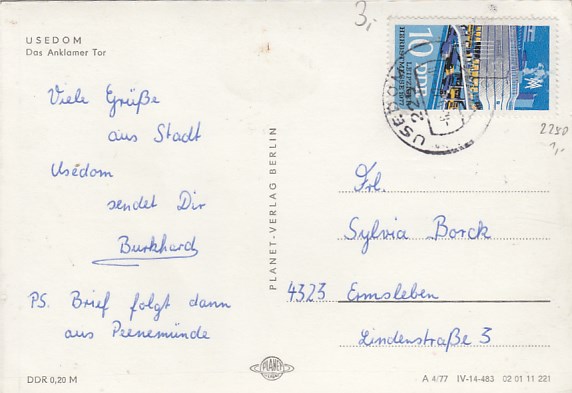 USEDOM
Das Anklamer Tor
Viele Grüße
aus Stadt
Usedom
sendet Dir
Burkhard
PS. Brief folgt dann
aus Peenemünde
DDR 0,20 M
PLANET-VERLAG BERLIN
PLANET
3,-
10 DDR
LEIPZIGER
HERBSTMESSE 1977
USEDOM
2250
1,-
Frl.
Sylvia Borck
4323 Ermsleben
Lindenstraße 3
A 4/77 IV-14-483 02 01 11 221